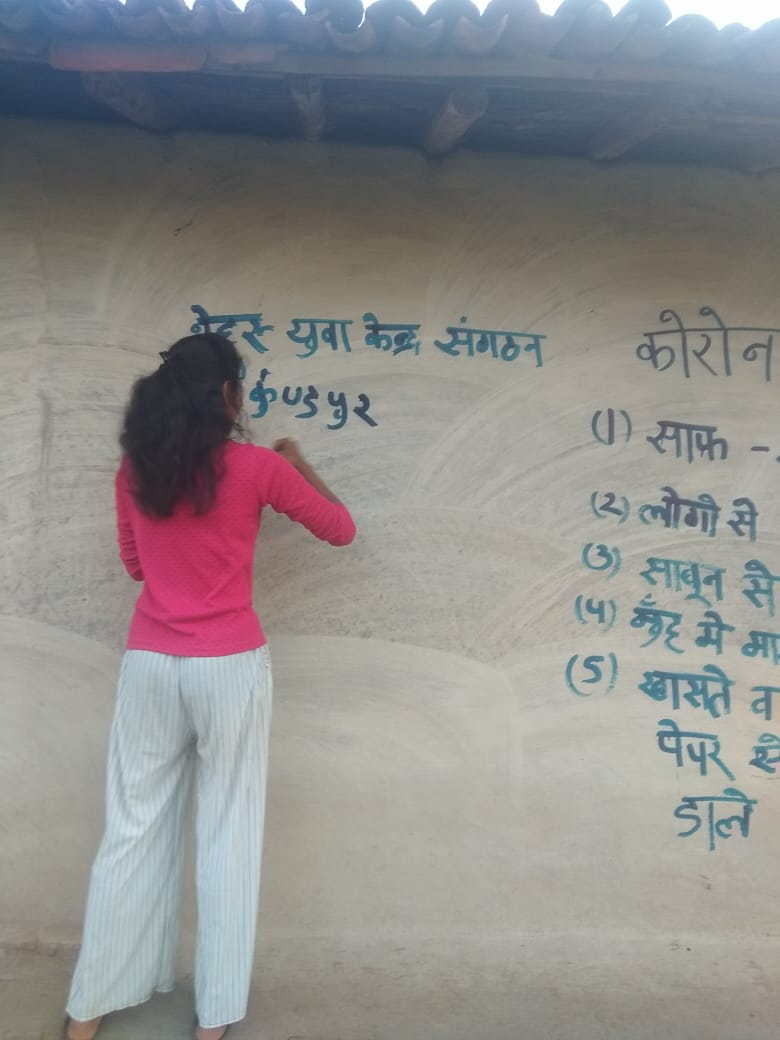 नेहरू युवा केन्द्र संगठन
कुण्डपुर
कोरोन
(1) साफ -
(2) लोगो से
(3) साबून से
(4) मुँह मे मा
(5) खासते व
पेपर से
डाले